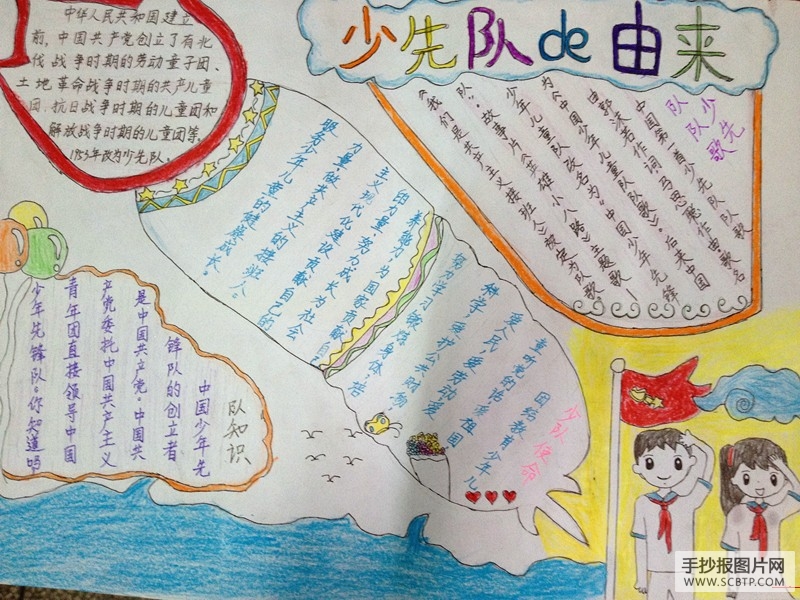 少先队de由来
中华人民共和国建立
前,中国共产党创立了有北
伐战争时期的劳动童子团、
土地革命战争时期的共产儿童
团、抗日战争时期的儿童团和
解放战争时期的儿童团等。
1953年改为少先队。
少先
队队歌
中国第一首少先队队歌名
由郭沫若作词马思聪作曲歌
为《中国少年儿童队队歌》。后来中国
少年儿童队改名为“中国少年先锋
队”。故事片《英雄小八路》主题歌
《我们是共产主义接班人》被定为队歌
少队使命
团结教育少年儿
童听党的话,爱祖国,
爱人民,爱劳动,爱
科学,爱护公共财物,
努力学习,锻炼身体,培
养能力,为国家贡献自己
的力量,努力成长为社会
主义现代化建设贡献自己的
力量,做共产主义的接班人。
服务少年儿童的健康成长。
队知识
中国少年先
锋队的创立者
是中国共产党。中国共
产党委托中国共产主义
青年团直接领导中国
少年先锋队。你知道吗
手抄报图片网
WWW.SCBTP.COM